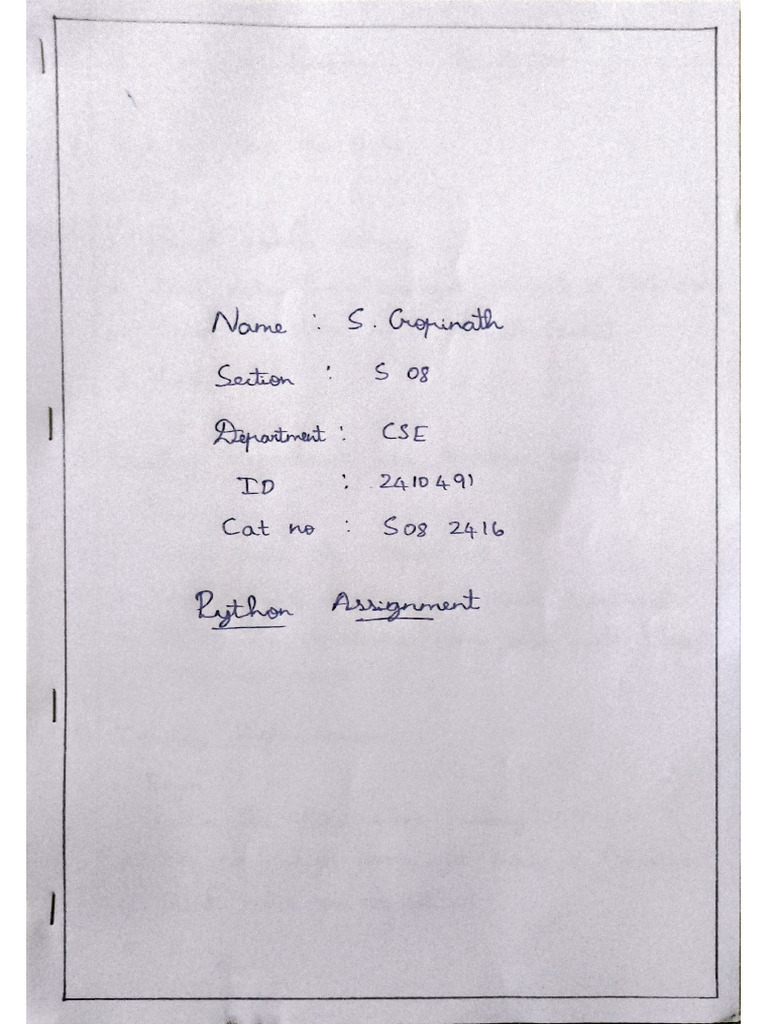 Name : S. Gopinath
Section : S 08
Department : CSE
ID : 2410491
Cat no : S08 2416
Python Assignment